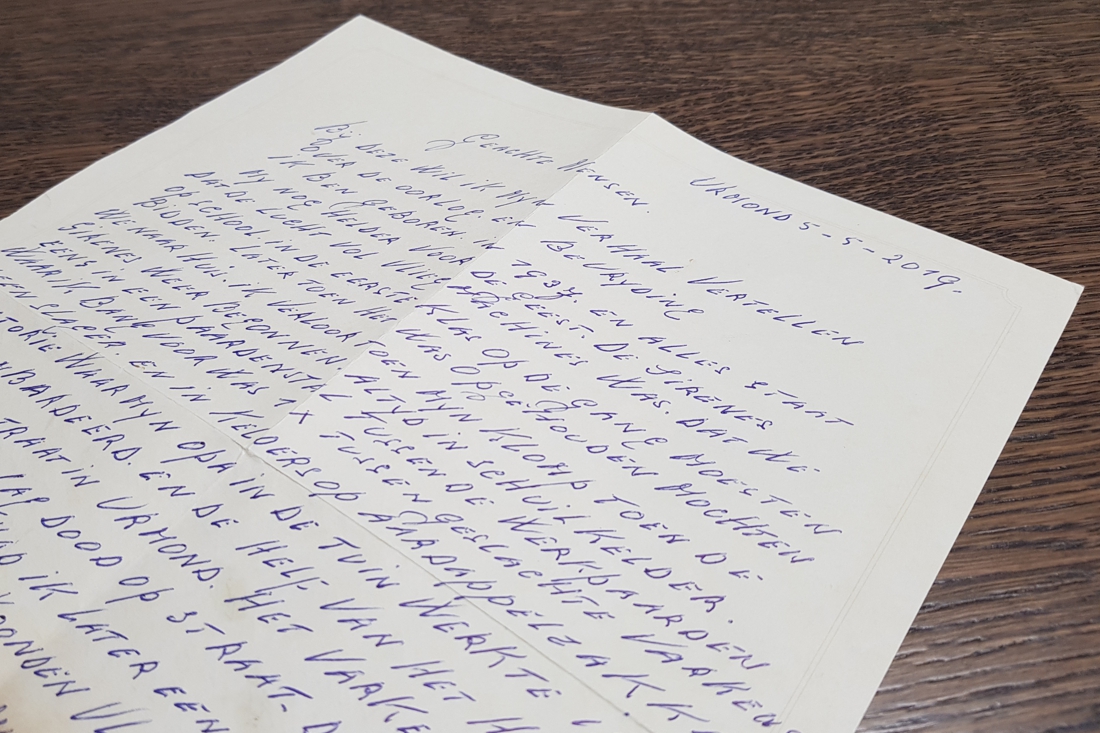 URMOND 5-5-2019.
GEACHTE MENSEN.
BIJ DEZE WIL IK MYN VERHAAL VERTELLEN
OVER DE OORLOG EN BEVRYDING
IK BEN GEBOREN IN 1937. EN ALLES STAAT
MY NOG HELDER VOOR DE GEEST. DE SIRENES
DAT DE LUCHT VOL VLIEGMACHINES WAS. DAT WE
OP SCHOOL IN DE EERSTE KLAS OP DE GANG MOESTEN
BIDDEN. LATER TOEN HET WAS OPGEHOUDEN MOCHTEN
WE NAAR HUIS. IK VERLOOR TOEN MYN KLOMP TOEN DE
SIRENES WEER BEGONNEN ALTYD IN SCHUILKELDER.
EENS IN EEN PAARDENSTAL TUSSEN DE WERKPAARDEN
WAAR IK BANG VOOR WAS 1X TUSSEN GESLACHTE VARKENS
EN IN KELDERS OP AARDAPPELZAKK
WAAR MYN OPA IN DE TUIN WERKTE
BARDEERD. EN DE HELFT VAN HET
IN URMOND. HET VARKE
DOOD OP STRAAT.
IK LATER EEN